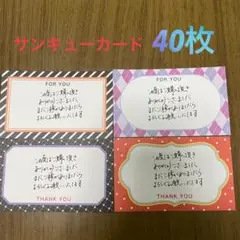 サンキューカード 40枚
FOR YOU
この度はご購入頂き
ありがとうございました
またご縁がありましたら
よろしくお願いいたします
FOR YOU
この度はご購入頂き
ありがとうございました
またご縁がありましたら
よろしくお願いいたします
この度はご購入頂き
ありがとうございました
またご縁がありましたら
よろしくお願いいたします
THANK YOU
この度はご購入頂き
ありがとうございました
またご縁がありましたら
よろしくお願いいたします
THANK YOU